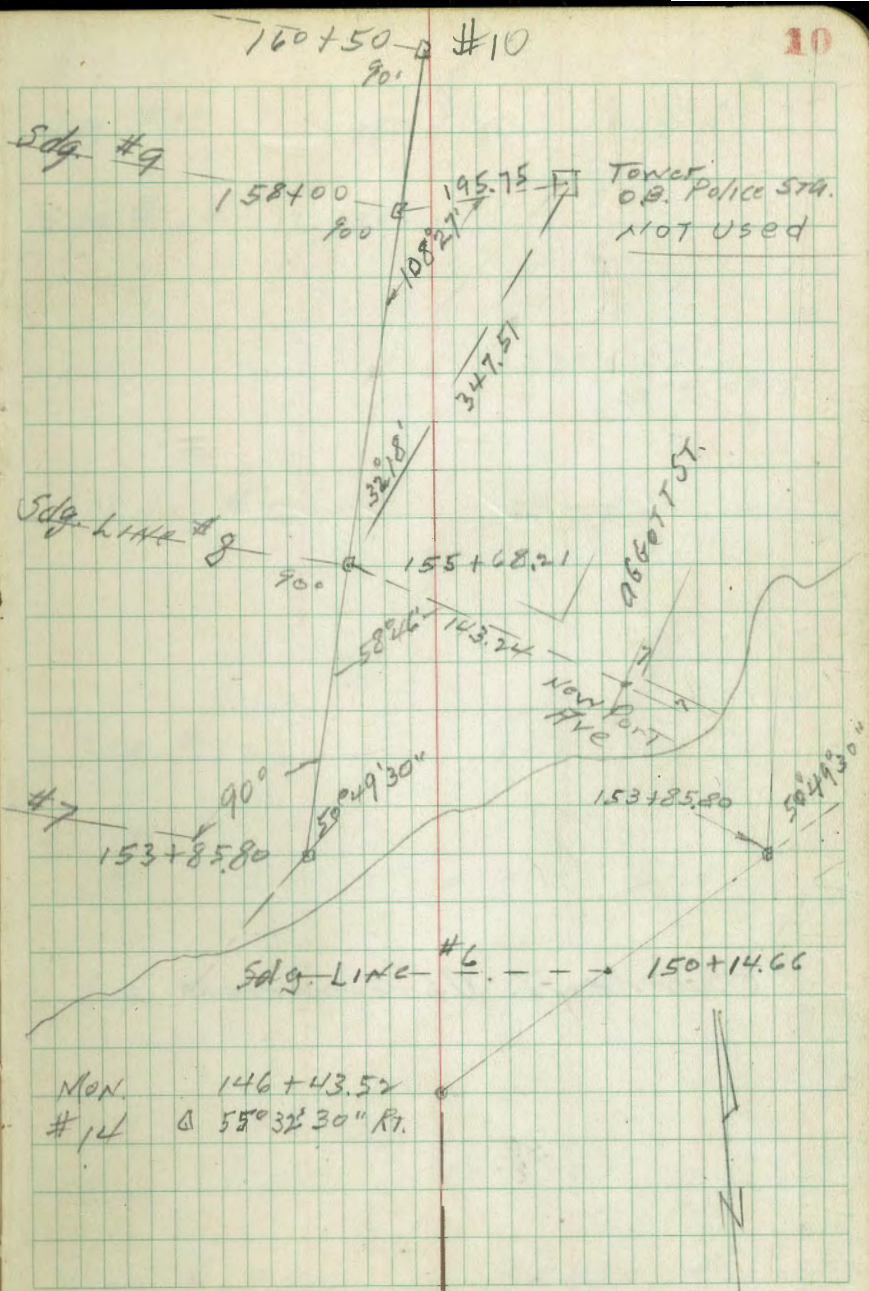 10
160+50 #10
90°
Sdg. #9
158+00
195.75
Tower
O.B. Police STA.
NOT Used
90°
108°27'
347.51
32°18'
Sdg. LINE #8
155+68.21
90°
58°46'
143.24
ST.
7
7
Newport
Ave
90°
#7
153+85.80
50°49'30"
153+85.80
50°49'30"
Sdg LINE #6
150+14.66
MON. 146+43.52
#14 Δ 55°32'30" RT.
N